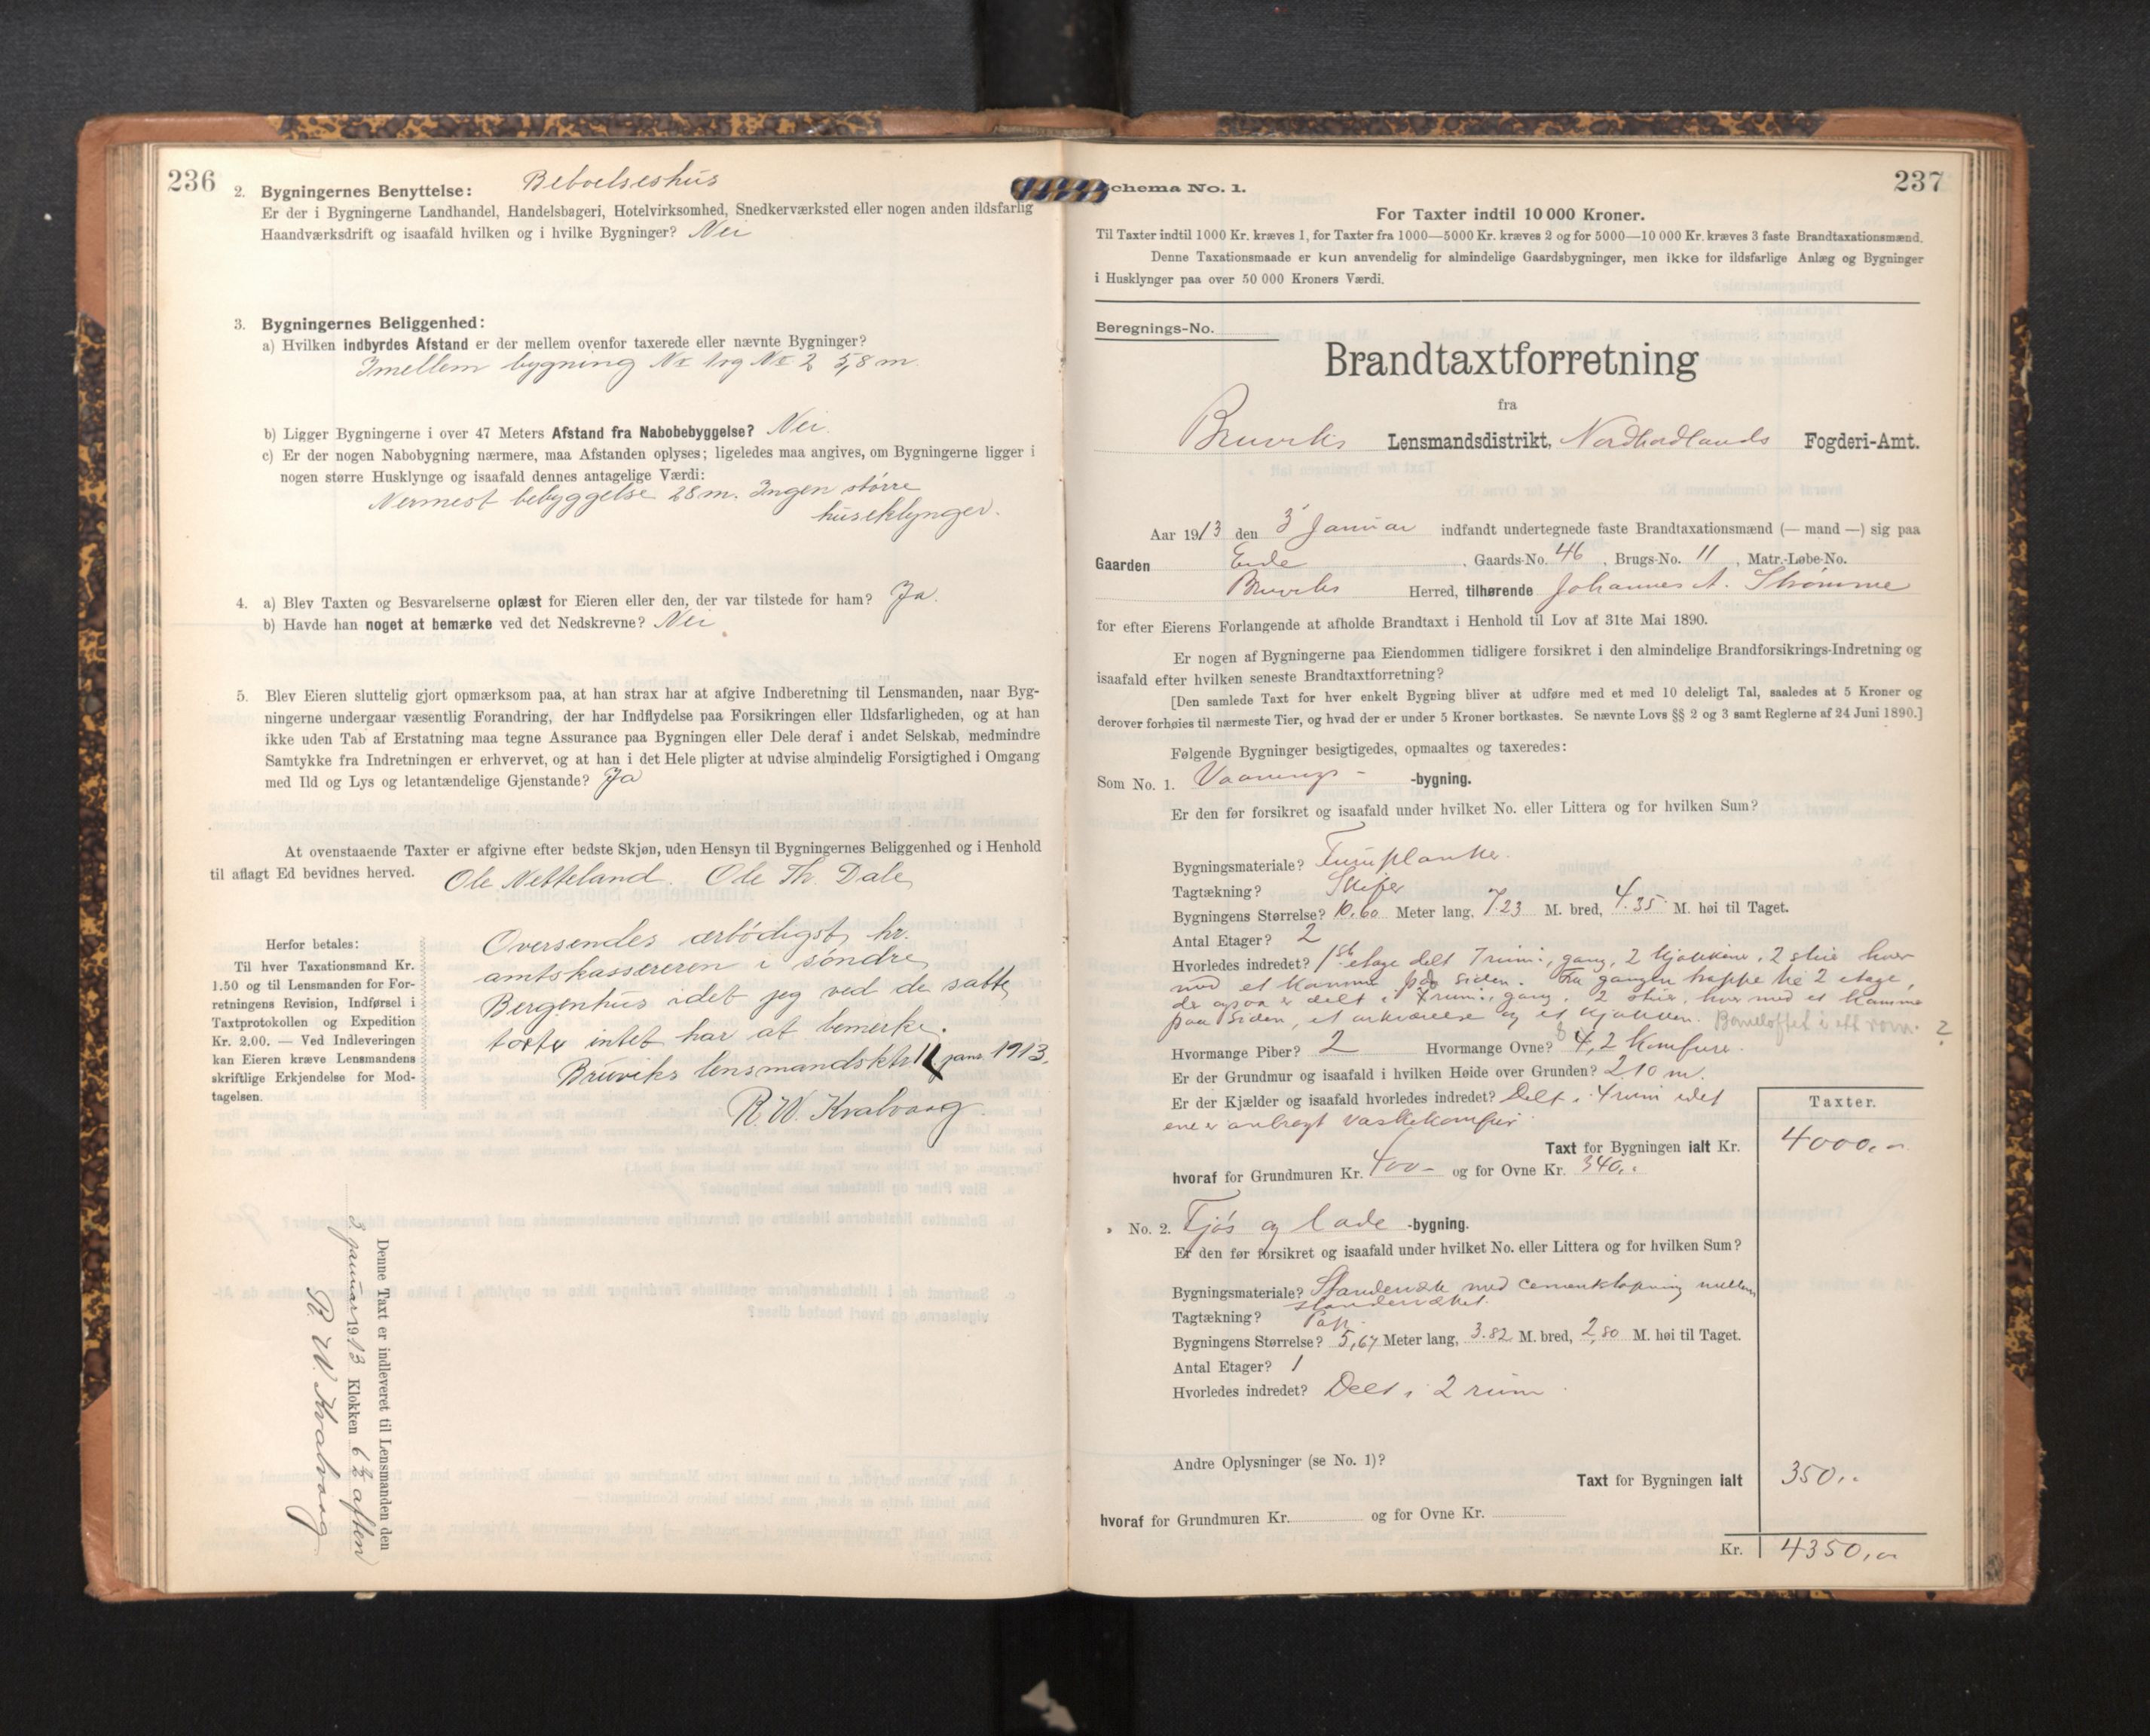 236
2. Bygningernes Benyttelse: Beboelseshus
Er der i Bygningerne Landhandel, Handelsbageri, Hotelvirksomhed, Snedkerværksted eller nogen anden ildsfarlig
Haandværksdrift og isaafald hvilken og i hvilke Bygninger? Nei
3. Bygningernes Beliggenhed:
a) Hvilken indbyrdes Afstand er der mellem ovenfor taxerede eller nævnte Bygninger?
Imellem bygning No 1 og No 2 5,8 m.
b) Ligger Bygningerne i over 47 Meters Afstand fra Nabobebyggelse? Nei.
c) Er der nogen Nabobygning nærmere, maa Afstanden oplyses; ligeledes maa angives, om Bygningerne ligger i
nogen større Husklynge og isaafald dennes antagelige Værdi:
Nermest bebyggelse 28 m. Ingen større
huseklynger.
4. a) Blev Taxten og Besvarelserne oplæst for Eieren eller den, der var tilstede for ham? Ja.
b) Havde han noget at bemærke ved det Nedskrevne? Nei
5. Blev Eieren sluttelig gjort opmærksom paa, at han strax har at afgive Indberetning til Lensmanden, naar Byg-
ningerne undergaar væsentlig Forandring, der har Indflydelse paa Forsikringen eller Ildsfarligheden, og at han
ikke uden Tab af Erstatning maa tegne Assurance paa Bygningen eller Dele deraf i andet Selskab, medmindre
Samtykke fra Indretningen er erhvervet, og at han i det Hele pligter at udvise almindelig Forsigtighed i Omgang
med Ild og Lys og letantændelige Gjenstande? Ja
At ovenstaaende Taxter er afgivne efter bedste Skjøn, uden Hensyn til Bygningernes Beliggenhed og i Henhold
til aflagt Ed bevidnes herved. Ole Netteland. Ole Th. Dale
Herfor betales:
Til hver Taxationsmand Kr.
1.50 og til Lensmanden for For-
retningens Revision, Indførsel i
Taxtprotokollen og Expedition
Kr. 2.00. — Ved Indleveringen
kan Eieren kræve Lensmandens
skriftlige Erkjendelse for Mod-
tagelsen.
Oversendes ærbödigst hr.
amtskassereren i söndre
Bergenhus idet jeg ved de satte
taxter intet har at bemerke.
Bruviks lensmandsktr 11 janr. 1913.
R. W. Kvalvaag.
Denne Taxt er indleveret til Lensmanden den
3 januar 1913 Klokken 6½ aften
R. W. Kvalvaag
237
Schema No. 1.
For Taxter indtil 10 000 Kroner.
Til Taxter indtil 1000 Kr. kræves 1, for Taxter fra 1000—5000 Kr. kræves 2 og for 5000—10 000 Kr. kræves 3 faste Brandtaxationsmænd.
Denne Taxationsmaade er kun anvendelig for almindelige Gaardsbygninger, men ikke for ildsfarlige Anlæg og Bygninger
i Husklynger paa over 50 000 Kroners Værdi.
Beregnings-No.
Brandtaxtforretning
fra
Bruviks Lensmandsdistrikt, Nordhordlands Fogderi-Amt.
Aar 1913 den 3 Januar indfandt undertegnede faste Brandtaxationsmænd (— mand —) sig paa
Gaarden , Gaards-No. 46 , Brugs-No. 11 , Matr.-Løbe-No.
Bruviks Herred, tilhørende Johannes A. Strömme
for efter Eierens Forlangende at afholde Brandtaxt i Henhold til Lov af 31te Mai 1890.
Er nogen af Bygningerne paa Eiendommen tidligere forsikret i den almindelige Brandforsikrings-Indretning og
isaafald efter hvilken seneste Brandtaxtforretning?
[Den samlede Taxt for hver enkelt Bygning bliver at udføre med et med 10 deleligt Tal, saaledes at 5 Kroner og
derover forhøies til nærmeste Tier, og hvad der er under 5 Kroner bortkastes. Se nævnte Lovs §§ 2 og 3 samt Reglerne af 24 Juni 1890.]
Følgende Bygninger besigtigedes, opmaaltes og taxeredes:
Som No. 1. Vaanings- -bygning.
Er den før forsikret og isaafald under hvilket No. eller Littera og for hvilken Sum?
Bygningsmateriale?
Tagtækning? Skifer
Bygningens Størrelse? 10,60 Meter lang, 7.23 M. bred, 4.35 M. høi til Taget.
Antal Etager? 2
Hvorledes indredet? 1ste etage delt 7 rum:, gang, 2 kjøkkener, 2 stuer hver
med et kammer paa siden. Fra gangen trappe til 2 etage,
der ogsaa er delt i 7 rum:, gang, 2 stuer, hver med et kammer
paa siden, et arkværelse og et kjøkken. i ett rom. ?
Hvormange Piber? 2 Hvormange Ovne? 4, 2 Komfurer.
Er der Grundmur og isaafald i hvilken Høide over Grunden? 2,10 m.
Er der Kjælder og isaafald hvorledes indredet? Delt i 4 rum idet
ene er anbragt vaskekomfur.
Taxter.
Taxt for Bygningen ialt Kr. 4000,..
hvoraf for Grundmuren Kr. 400- og for Ovne Kr. 340,..
» No. 2. Fjös og lade -bygning.
Er den før forsikret og isaafald under hvilket No. eller Littera og for hvilken Sum?
Bygningsmateriale? med mellem
Tagtækning? Pap.
Bygningens Størrelse? 5,67 Meter lang, 3.82 M. bred, 2,80 M. høi til Taget.
Antal Etager? 1
Hvorledes indredet? Delt i 2 rum.
Andre Oplysninger (se No. 1)?
Taxt for Bygningen ialt 350,..
hvoraf for Grundmuren Kr. og for Ovne Kr.
Kr. 4350,..